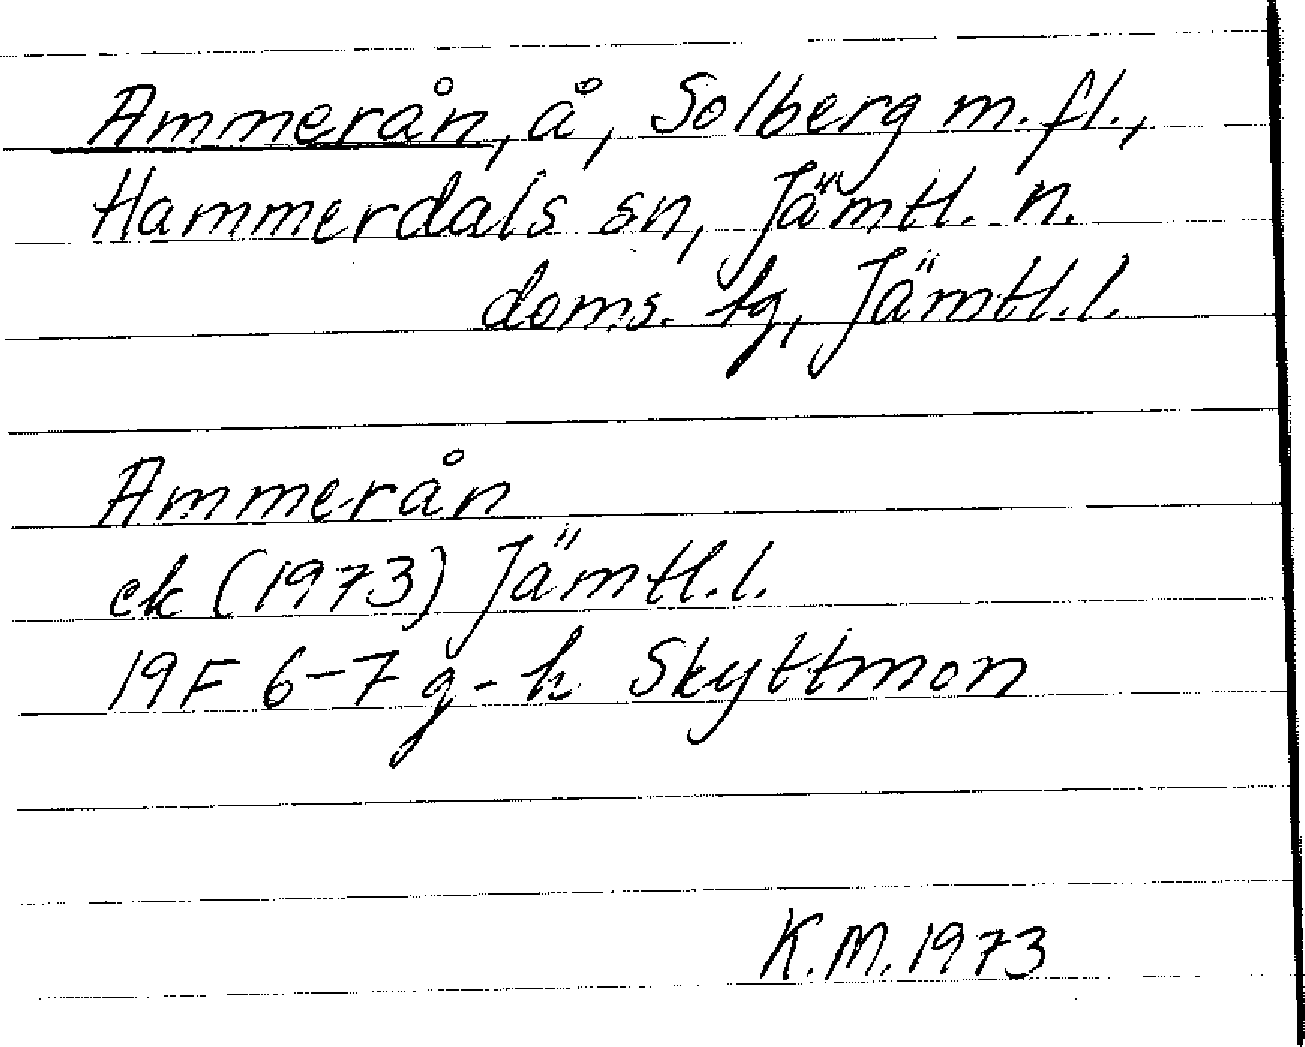 Ammerån, å, Solberg m.fl.,
Hammerdals sn, Jämtl. n.
doms. tg, Jämtl.l.
Ammerån
ek (1973) Jämtl.l.
19F 6-7 g-h Skyttmon
K.M. 1973